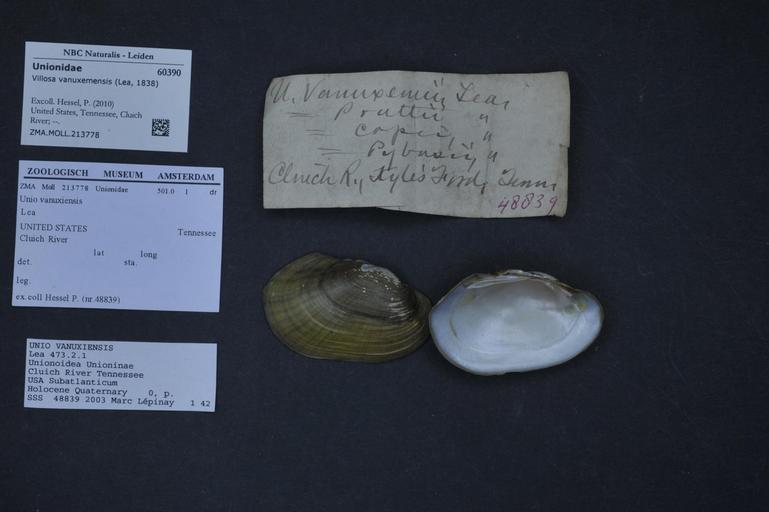 NBC Naturalis - Leiden
Unionidae 60390
Villosa vanuxemensis (Lea, 1838)
Excoll. Hessel, P. (2010)
United States, Tennessee, Cluich
River; --.
ZMA.MOLL.213778
ZOOLOGISCH MUSEUM AMSTERDAM
ZMA Moll 213778 Unionidae 501.0 1 dr
Unio vanuxiensis
Lea
UNITED STATES Tennessee
Cluich River
lat long
det. sta.
leg.
ex.coll Hessel P. (nr.48839)
UNIO VANUXIENSIS
Lea 473.2.1
Unionoidea Unioninae
Cluich River Tennessee
USA Subatlanticum
Holocene Quaternary 0, p.
SSS 48839 2003 Marc Lépinay 1 42
U. Vanuxemii, Lea,
= Prattii "
= Copei, "
= Pybasii, "
Clinch R., Kyle's Ford, Tenn
48839